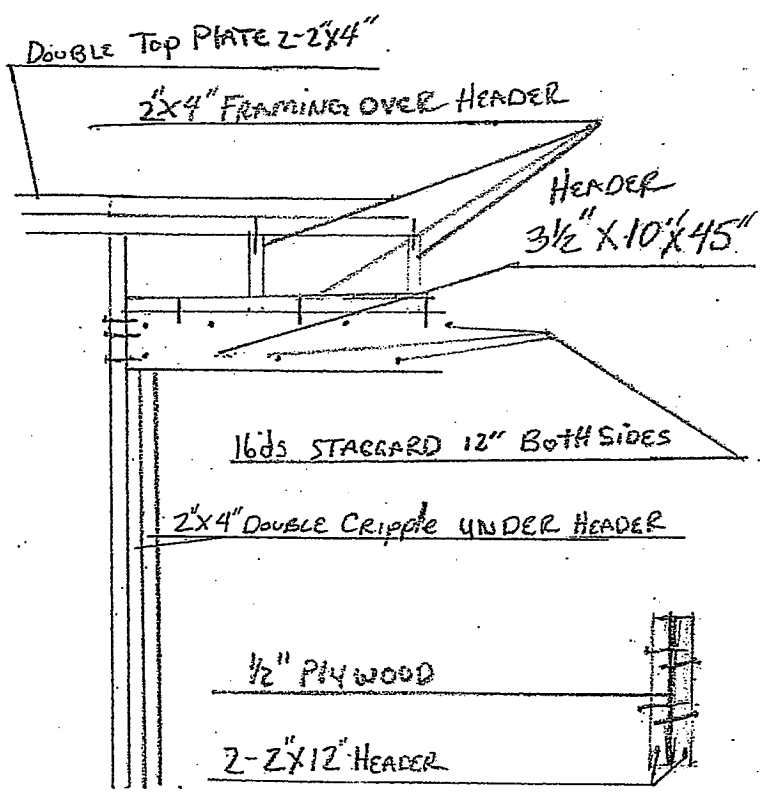 DOUBLE TOP PLATE 2-2"X4"
2"X4" FRAMING OVER HEADER
HEADER
3½" X 10" X 45"
16ds STAGGARD 12" BOTH SIDES
2"X4" DOUBLE CRIPPLE UNDER HEADER
½" PLYWOOD
2-2"X12" HEADER